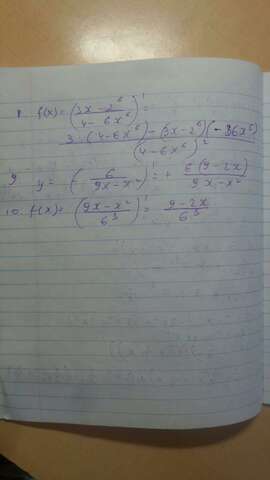 8. f(x)=(3x-2⁶/4-6x⁶)'=
3·(4-6x⁶)-(3x-2⁶)(-36x⁵)/(4-6x⁶)²
9. y=(-6/9x-x²)'=+6(9-2x)/9x-x²
10. f(x)=(9x-x²/6³)'=9-2x/6³